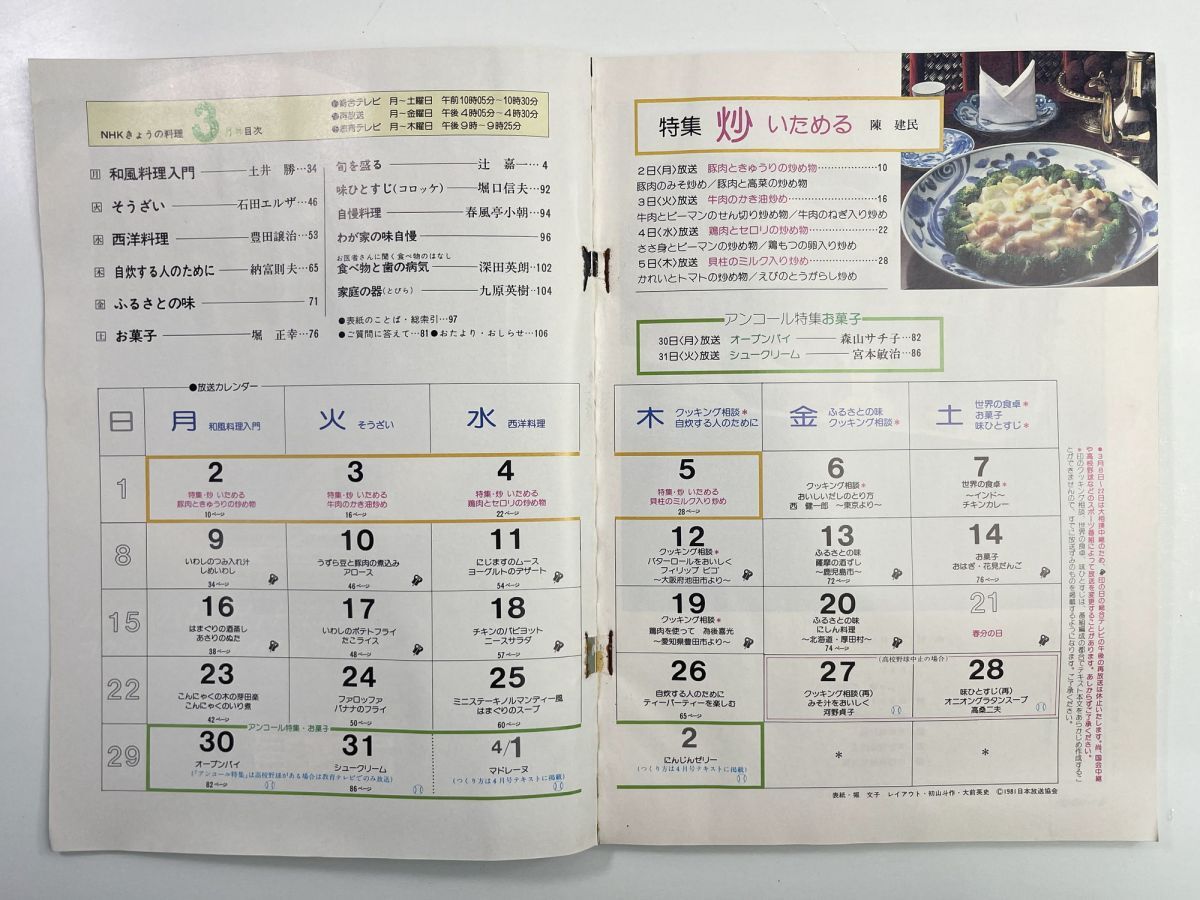 NHKきょうの料理 3月号目次
総合テレビ 月〜土曜日 午前10時05分〜10時30分
再放送 月〜金曜日 午後4時05分〜4時30分
教育テレビ 月〜木曜日 午後9時〜9時25分
月 和風料理入門 土井 勝…34
火 そうざい 石田エルザ…46
水 西洋料理 豊田譲治…53
木 自炊する人のために 納富則夫…65
金 ふるさとの味 71
土 お菓子 堀 正幸…76
旬を盛る 辻 嘉一…4
味ひとすじ(コロッケ) 堀口信夫…92
自慢料理 春風亭小朝…94
わが家の味自慢 96
お医者さんに聞く食べ物のはなし
食べ物と歯の病気 深田英朗…102
家庭の器(とびら) 九原英樹…104
●表紙のことば・総索引…97
●ご質問に答えて…81●おたより・おしらせ…106
特集 炒 いためる 陳 建民
2日(月)放送 豚肉ときゅうりの炒め物 10
豚肉のみそ炒め/豚肉と高菜の炒め物
3日(火)放送 牛肉のかき油炒め 16
牛肉とピーマンのせん切り炒め物/牛肉のねぎ入り炒め
4日(水)放送 鶏肉とセロリの炒め物 22
ささ身とピーマンの炒め物/鶏もつの卵入り炒め
5日(木)放送 貝柱のミルク入り炒め 28
かれいとトマトの炒め物/えびのとうがらし炒め
アンコール特集お菓子
30日(月)放送 オープンパイ 森山サチ子…82
31日(火)放送 シュークリーム 宮本敏治…86
●放送カレンダー
日
月 和風料理入門
火 そうざい
水 西洋料理
木 クッキング相談*
自炊する人のために
金 ふるさとの味
クッキング相談*
土 世界の食卓*
お菓子
味ひとすじ*
1
2
特集・炒 いためる
豚肉ときゅうりの炒め物
10ページ
3
特集・炒 いためる
牛肉のかき油炒め
16ページ
4
特集・炒 いためる
鶏肉とセロリの炒め物
22ページ
5
特集・炒 いためる
貝柱のミルク入り炒め
28ページ
6
クッキング相談*
おいしいだしのとり方
西 健一郎 〜東京より〜
7
世界の食卓*
〜インド〜
チキンカレー
8
9
いわしのつみ入れ汁
しめいわし
34ページ
10
うずら豆と豚肉の煮込み
アロース
46ページ
11
にじますのムース
ヨーグルトのデザート
54ページ
12
クッキング相談*
バターロールをおいしく
フィリップ ビゴ
〜大阪府池田市より〜
13
ふるさとの味
薩摩の酒ずし
〜鹿児島市〜
72ページ
14
お菓子
おはぎ・花見だんご
76ページ
15
16
はまぐりの酒蒸し
あさりのぬた
38ページ
17
いわしのポテトフライ
たこライス
48ページ
18
チキンのパピヨット
ニースサラダ
57ページ
19
クッキング相談*
鶏肉を使って 為後喜光
〜愛知県豊田市より〜
20
ふるさとの味
にしん料理
〜北海道・厚田村〜
74ページ
21
春分の日
22
23
こんにゃくの木の芽田楽
こんにゃくのいり煮
42ページ
24
ファロッファ
バナナのフライ
50ページ
25
ミニステーキノルマンディー風
はまぐりのスープ
60ページ
26
自炊する人のために
ティーパーティーを楽しむ
65ページ
(高校野球中止の場合)
27
クッキング相談(再)
みそ汁をおいしく
河野貞子
28
味ひとすじ(再)
オニオングラタンスープ
高桑二夫
29
アンコール特集・お菓子
30
オープンパイ
(「アンコール特集」は高校野球がある場合は教育テレビでのみ放送)
82ページ
31
シュークリーム
86ページ
4/1
マドレーヌ
(つくり方は4月号テキストに掲載)
2
にんじんゼリー
(つくり方は4月号テキストに掲載)
*
*
●3月8日〜22日は大相撲中継のため、印の日の総合テレビの午後の再放送は休止いたします。尚、国会中継
や高校野球などのスポーツ番組によって放送を変更することがあります。あしからずご了承ください。
*印のクッキング相談、世界の食卓、味ひとすじは、番組編成の都合でテキスト本文をあらかじめ作成するこ
とができませんので、すでに放送ずみのものを掲載するようになります。ご了承ください。
表紙・堀 文子 レイアウト・初山斗作・大前英史 ©1981日本放送協会